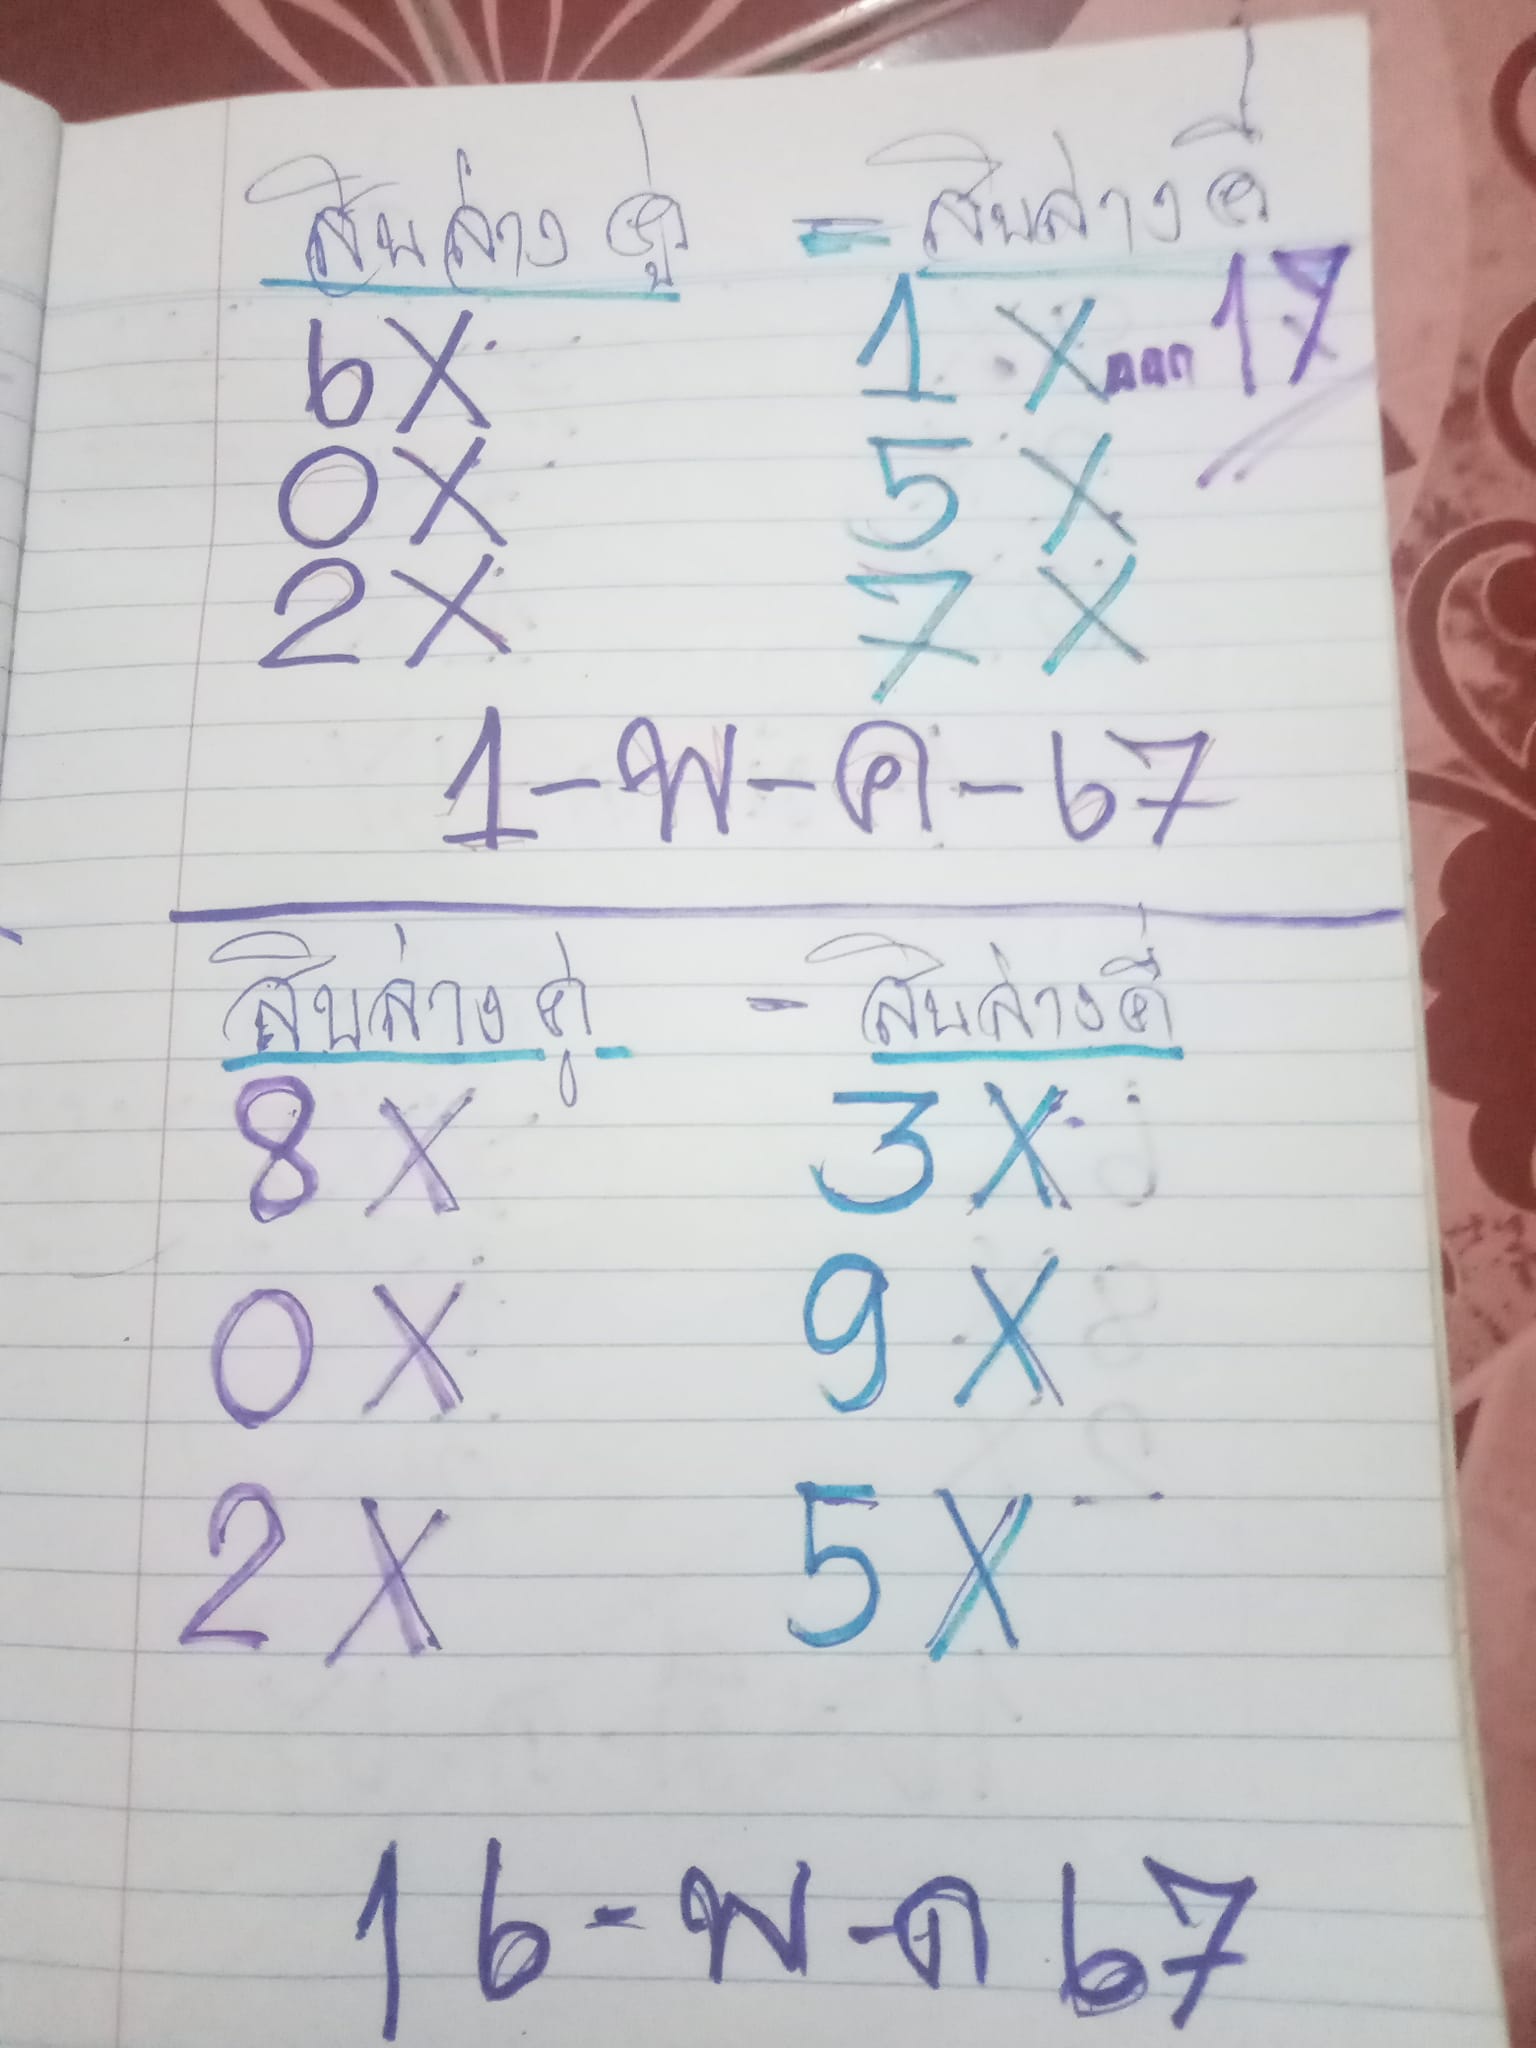 สิบล่าง คู่ - สิบล่าง คี่
6X 1X ออก 17
0X 5X
2X 7X
1-พ-ค-67
สิบล่าง คู่ - สิบล่างคี่
8X 3X
0X 9X
2X 5X
16-พ-ค 67